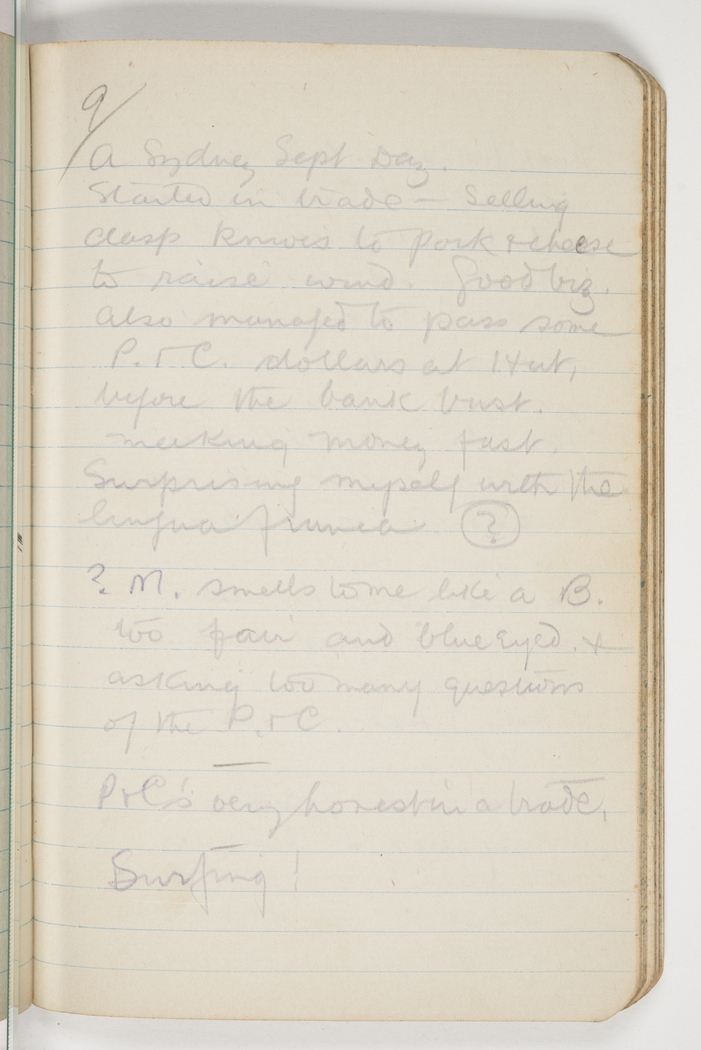 9/
A Sydney Sept Day.
Started in trade – Selling
clasp knives to Pork & cheese
to raise wind. Good biz.
Also managed to pass some
P. & C. dollars at 14 ut,
before the bank bust.
making money fast.
Surprising myself with the
lingua franca (?)
? M. smells to me like a B.
too fair and blue eyed. &
asking too many questions
of the P. & C.
P & C's very honest in a trade.
Surfing!